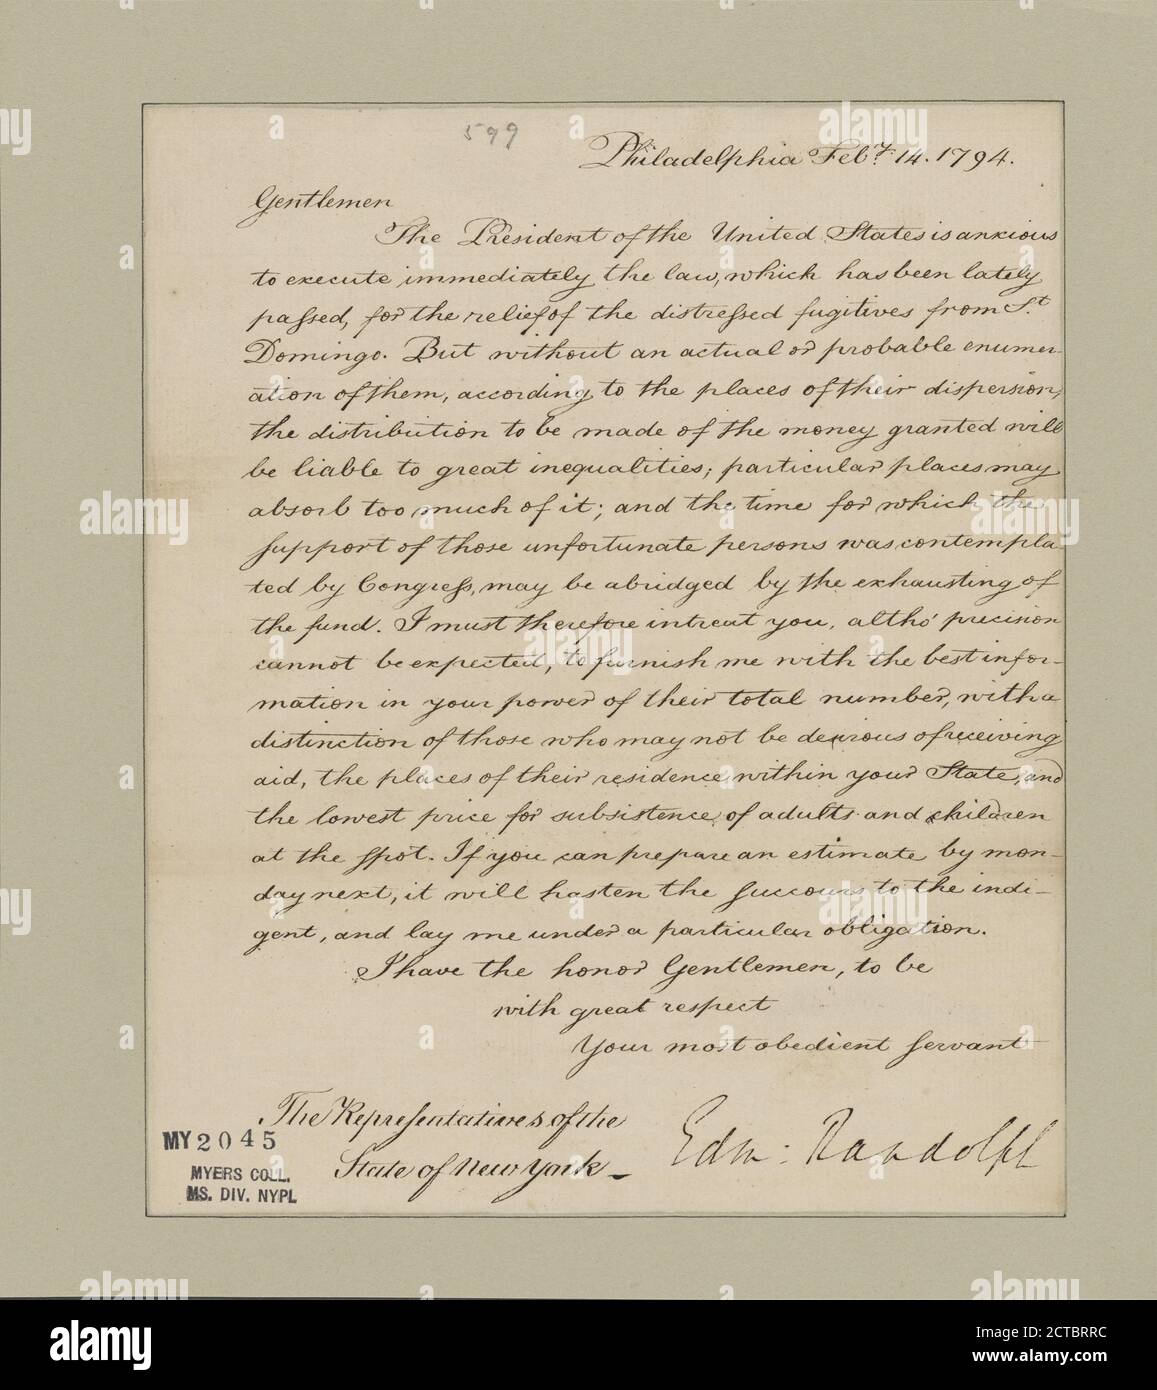 599
Philadelphia Feb.y 14. 1794.
Gentlemen
The President of the United States is anxious
to execute immediately the law, which has been lately
passed, for the relief of the distressed fugitives from St.
Domingo. But without an actual or probable enumer-
ation of them, according to the places of their dispersion,
the distribution to be made of the money granted will
be liable to great inequalities; particular places may
absorb too much of it; and the time for which the
support of those unfortunate persons was contempla-
ted by Congress, may be abridged by the exhausting of
the fund. I must therefore intreat you, altho' precision
cannot be expected, to furnish me with the best infor-
mation in your power of their total number, with a
distinction of those who may not be desirous of receiving
aid, the places of their residence within your State, and
the lowest price for subsistence of adults and children
at the spot. If you can prepare an estimate by mon-
day next, it will hasten the succours to the indi-
gent, and lay me under a particular obligation.
I have the honor Gentlemen, to be
with great respect
Your most obedient servant
The Representatives of the
State of New York
Edm: Randolph
MY 2045
MYERS COLL.
MS. DIV. NYPL
alamy
Image ID: 2CTBRRC
www.alamy.com